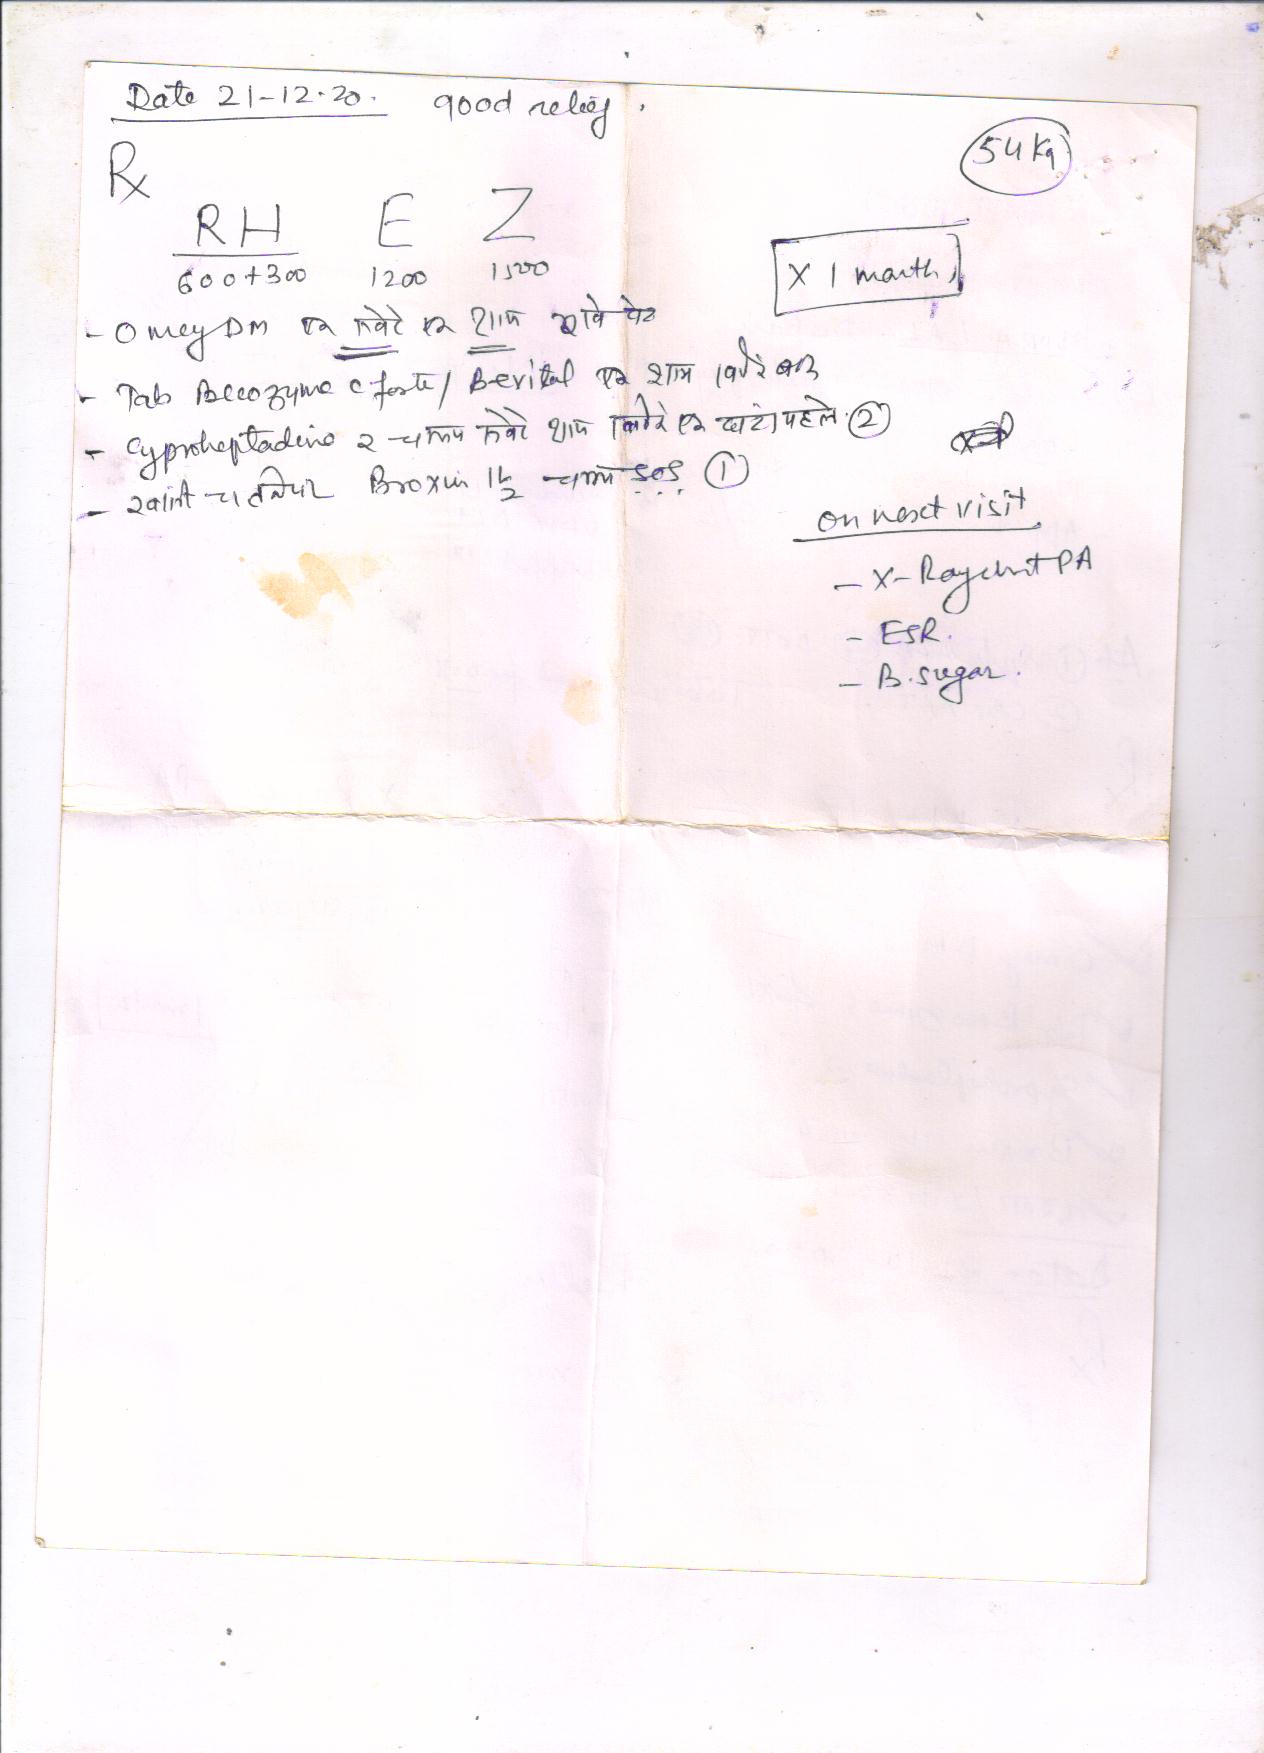 Date 21-12.20. good relief.
54 Kg
Rx
RH E Z
600+300 1200 1500
X 1 month
- Omey DM एक सवेरे एक शाम खाली पेट
- Tab Becozyme C forte / Bevital एक शाम बाद
- Cyproheptadine २ चम्मच सवेरे शाम एक घंटा पहले ②
- Broxin 1½ चम्मच SOS ①
on next visit
- X-Ray chest PA
- ESR.
- B. sugar.